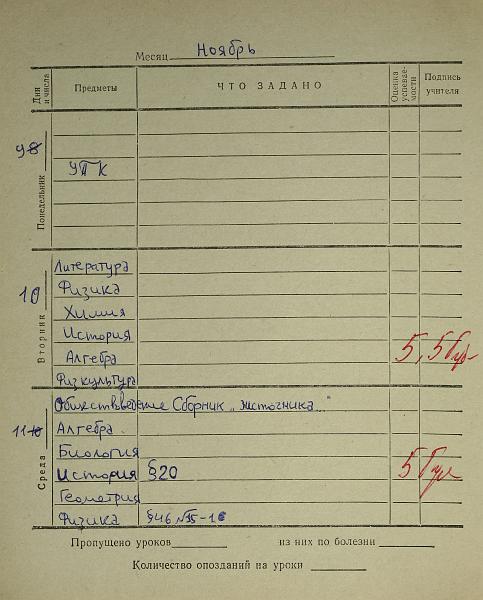 Месяц Ноябрь
Дни и числа Предметы ЧТО ЗАДАНО Оценка успеваемости Подпись учителя
Понедельник 9
УПК
Вторник 10
Литература
Физика
Химия
История 5, 5
Алгебра
Физкультура
Среда 11
Сборник „
Алгебра
Биология
История §20 5
Геометрия
Физика §46
Пропущено уроков из них по болезни
Количество опозданий на уроки